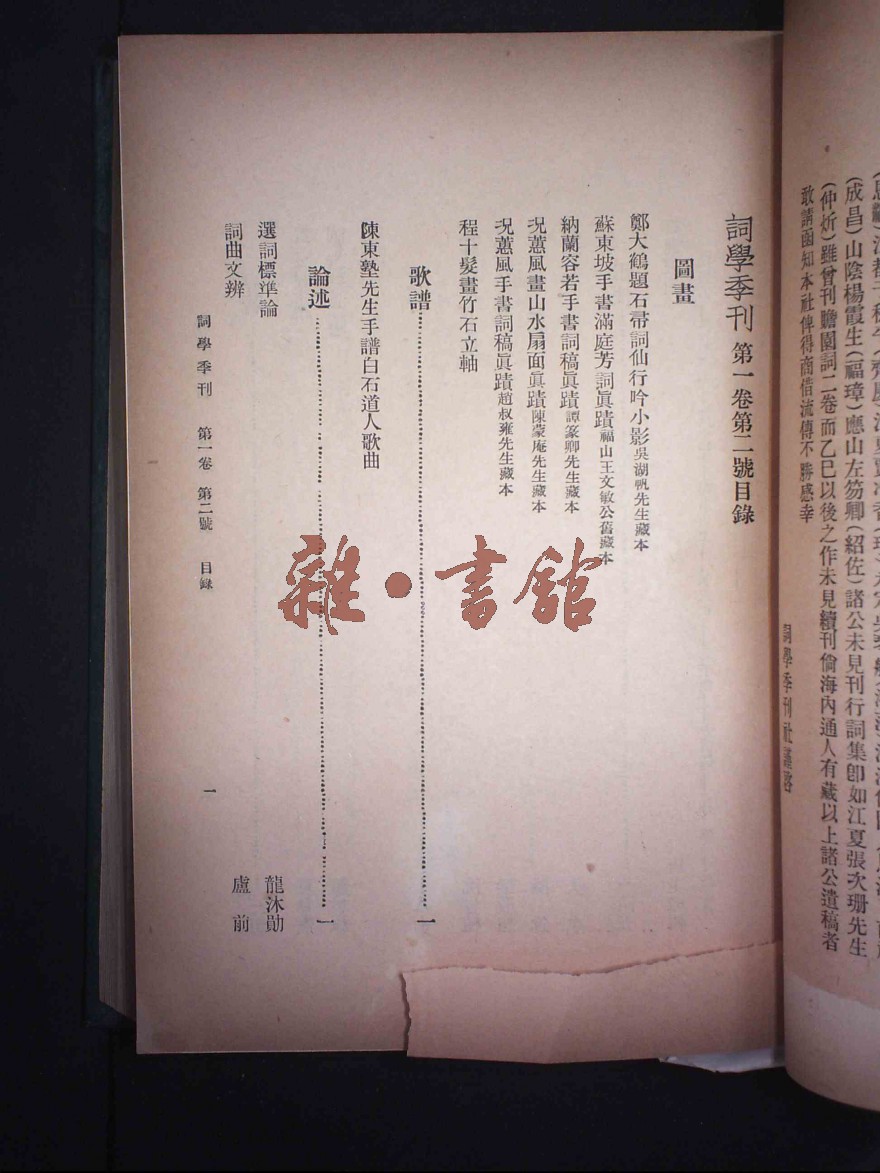 (成昌)山陰楊霞生(福璋)應山左笏卿(紹佐)諸公未見刊行詞集卽如江夏張次珊先生
(仲炘)雖曾刊瞻園詞二卷而乙巳以後之作未見續刊倘海內通人有藏以上諸公遺稿者
敢請函知本社俾得商借流傳不勝感幸
詞學季刊社謹啓
詞學季刊第一卷第二號目錄
圖畫
鄭大鶴題石帚詞仙行吟小影吳湖帆先生藏本
蘇東坡手書滿庭芳詞眞蹟福山王文敏公舊藏本
納蘭容若手書詞稿眞蹟譚篆卿先生藏本
況蕙風畫山水扇面眞蹟陳蒙庵先生藏本
況蕙風手書詞稿眞蹟趙叔雍先生藏本
程十髮畫竹石立軸
歌譜……一
陳東塾先生手譜白石道人歌曲
論述……一
選詞標準論 龍沐勛
詞曲文辨 盧前
詞學季刊 第一卷 第二號 目錄 一
雜·書館